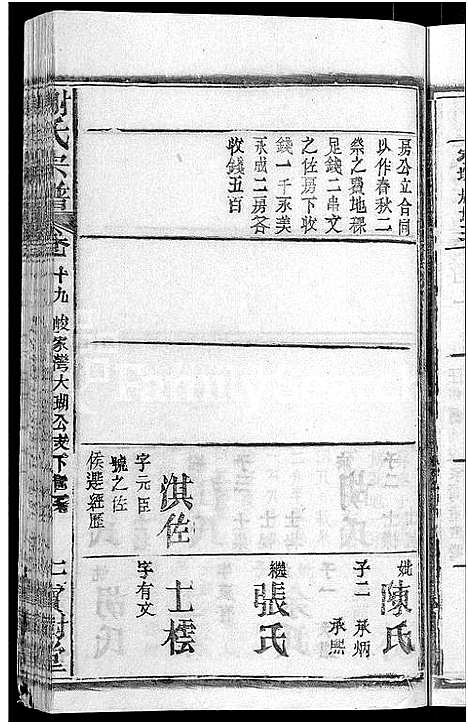 房公立合同
以作春秋二
祭之費地稞
足錢二串文
之佐房下收
錢一千承美
承成二房各
收錢五百
淇佐
字元臣
號之佐
侯選經歷
妣陳氏
子二 承炳
承熙
繼張氏
士橒
字有文
謝氏宗譜
十九
家灣大瑚公支下
寶樹堂